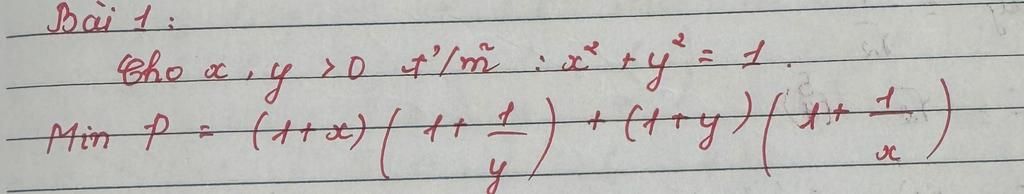 Bài 1:
Cho x, y > 0 t²/m² : x² + y² = 1.
Min P = (1+x)(1 + 1/y) + (1+y)(1 + 1/x)